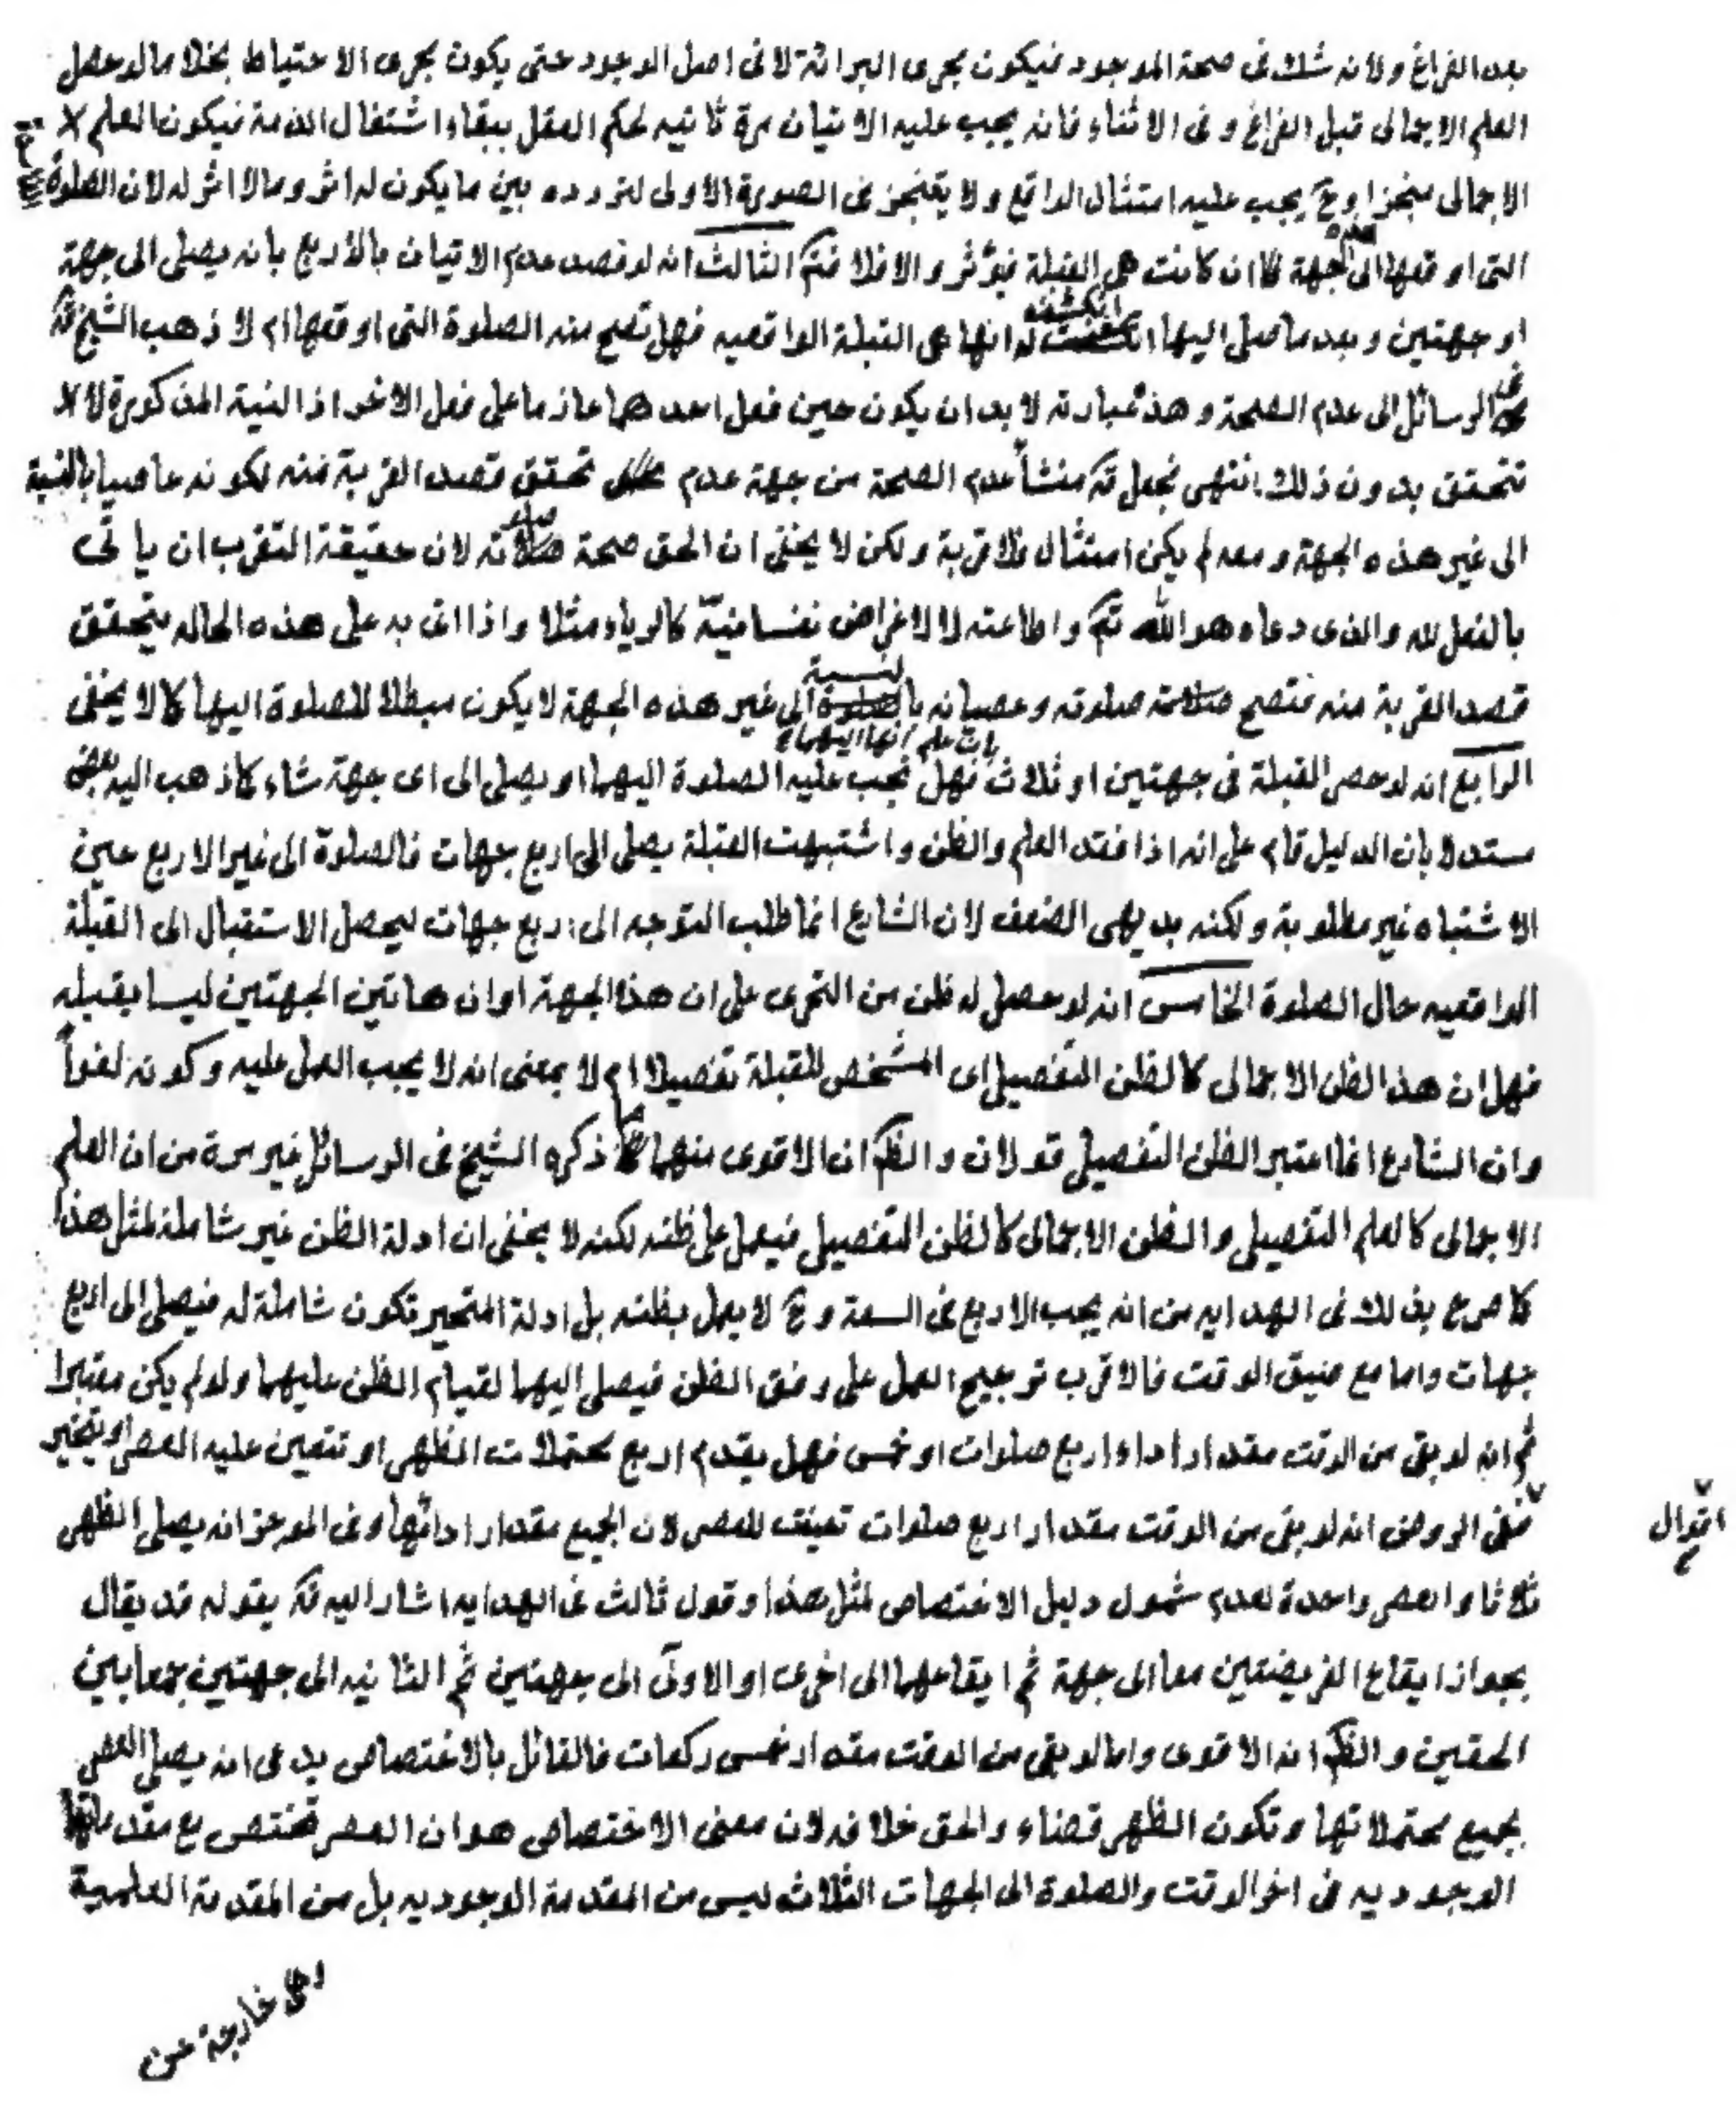 بعد الفراغ ولانه شك فى صحة الموجود فيكون مجرى البرائة لا فى اصل الوجود حتى يكون مجرى الاحتياط بخلاف ما لو حصل
العلم الاجمالى قبل الفراغ وفى الاثناء فانه يجب عليه الاتيان مرة ثانيه لحكم العقل ببقاء اشتغال الذمة فيكون العلم
الاجمالى منجزا وح يجب عليه امتثال الواقع ولا يتنجز فى الصورة الاولى لتردده بين ما يكون له اثر وما لا اثر له لان الصلوة
التى اوقعها الى هذه الجهة فان كانت هى القبلة فيؤثر والا فلا فتم الثالث انه لو قصد عدم الاتيان بالاربع بان يصلى الى جهة
او جهتين وبعد ما صلى اليها انكشفت له انها هى القبلة الواقعيه فهل تصح منه الصلوة التى اوقعها ام لا ذهب الشيخ قد
فى الرسائل الى عدم الصحة وهذه عبارته لا بد ان يكون حين فعل احدهما عازما على فعل الاخر اذ النية المذكورة لا
تتحقق بدون ذلك انتهى فجعل قد منشأ عدم الصحة من جهة عدم تحقق قصد القربة منه لكونه عاصيا بالنسبة
الى غير هذه الجهة ومعه لم يكن امتثال فلا قربة ولكن لا يخفى ان الحق صحة صلاته لان حقيقة التقرب ان ياتى
بالفعل لله والذى دعاه هو الله تع واطاعته لا لاغراض نفسانيّة كالرياء مثلا واذا اتى به على هذه الحاله يتحقق
قصد القربة منه فتصح صلوته وعصيانه بالنسبة الى غير هذه الجهة لا يكون مبطلا للصلوة اليها كما لا يخفى
الرابع انه لو حصر القبلة فى جهتين او ثلاث بان علم انها اليهما فهل تجب عليه الصلوة اليهما او يصلى الى اى جهة شاء كما ذهب اليه بعض
مستدلا بان الدليل قام على انه اذا فقد العلم والظن واشتبهت القبلة يصلى الى اربع جهات فالصلوة الى غير الاربع حين
الاشتباه غير مطلوبة ولكنه بديهى الضعف لان الشارع انما طلب التوجه الى اربع جهات ليحصل الاستقبال الى القبلة
الواقعيه حال الصلوة الخامس انه لو حصل له ظن من التحرى على ان هذا الجهة او ان هاتين الجهتين ليسا بقبله
فهل ان هذا الظن الاجمالى كالظن التفصيلى اى المشخص للقبلة تفصيلا ام لا بمعنى انه لا يجب العمل عليه وكونه لغواً
وان الشارع انما اعتبر الظن التفصيلى قولان والظ ان الاقوى منهما كما ذكره الشيخ فى الرسائل غير مرة من ان العلم
الاجمالى كالعلم التفصيلى والظن الاجمالى كالظن التفصيلى فيعمل على ظنه لكنه لا يخفى ان ادلة الظن غير شاملة لمثل هذا
كما صرح بذلك فى الهدايه من انه يجب الاربع فى السعة وح لا يعمل بظنه بل ادلة المتحير تكون شاملة له فيصلى الى اربع
جهات واما مع ضيق الوقت فالاقرب ترجيح العمل على وفق الظن فيصلى اليهما لقيام الظن عليهما ولو لم يكن معتبرا
ثم انه لو بقى من الوقت مقدار اداء اربع صلوات او خمس فهل يقدم اربع محتملات الظهر او تتعين عليه العصر او يتخير
اقوال
ففى الروض انه لو بقى من الوقت مقدار اربع صلوات تعينت للعصر لان الجميع مقدار ادائها وفى الموجز انه يصلى الظهر
ثلاثا والعصر واحدة لعدم شمول دليل الاختصاص لمثل هذا وقول ثالث فى الهدايه اشار اليه قد بقوله قد يقال
بجواز ايقاع الفريضتين معا الى جهة ثم ايقاعهما الى اخرى او الاولى الى جهتين ثم الثانيه الى جهتين جمعا بين
الحقين والظ انه الاقوى واما لو بقى من الوقت مقدار خمس ركعات فالقائل بالاختصاص يدعى انه يصلى العصر
بجميع محتملاتها وتكون الظهر قضاء والحق خلافه لان معنى الاختصاص هو ان العصر تختص مع مقدماتها
الوجوديه فى اخر الوقت والصلوة الى الجهات الثلاث ليس من المقدمة الوجوديه بل من المقدمة العلمية
وهى خارجة عن